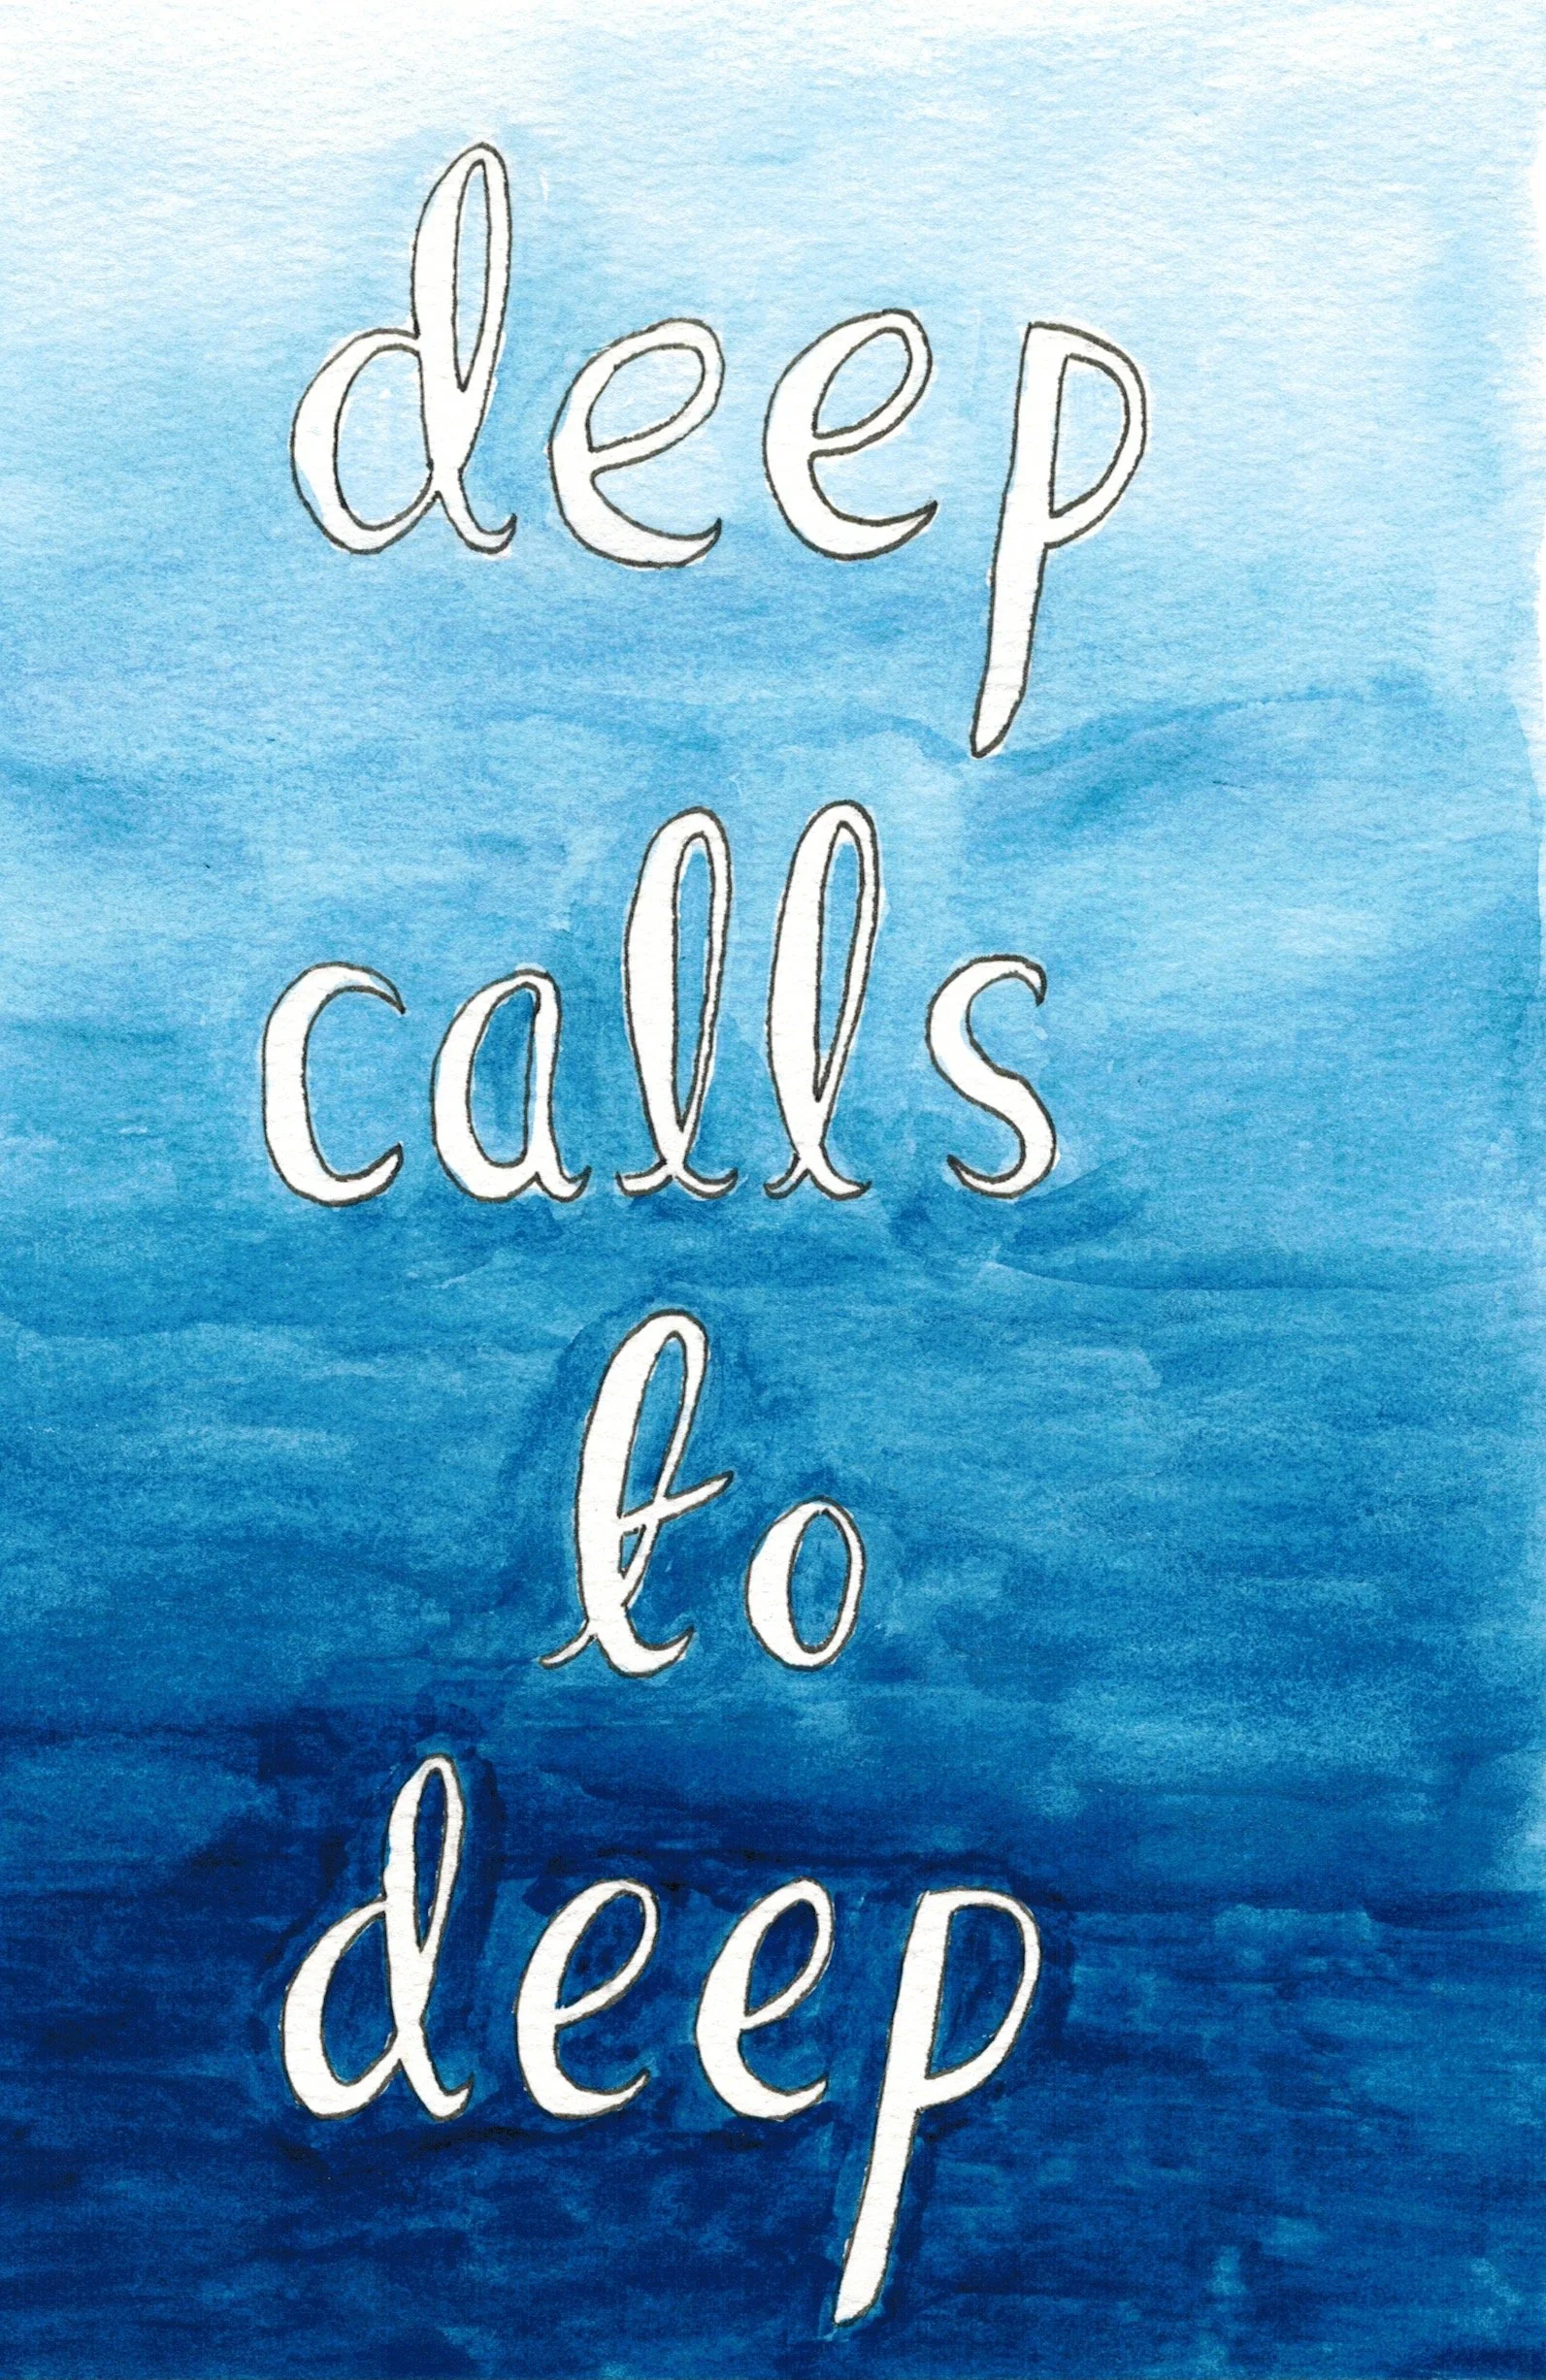 deep
calls
to
deep